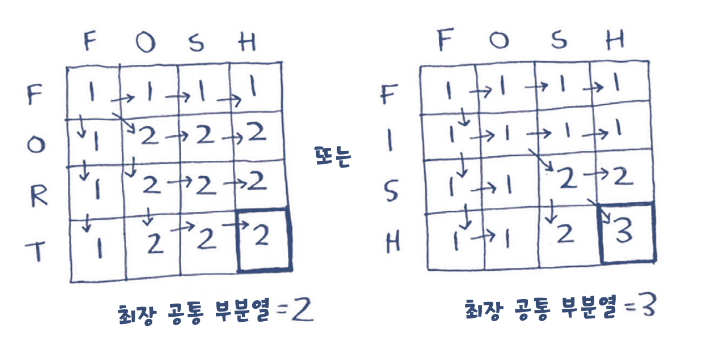 F O S H
F 1 → 1 → 1 → 1
O 1 2 → 2 → 2
R 1 2 → 2 → 2
T 1 2 → 2 → 2
최장 공통 부분열 = 2
또는
F O S H
F 1 → 1 → 1 → 1
I 1 → 1 → 1 → 1
S 1 → 1 2 → 2
H 1 → 1 2 3
최장 공통 부분열 = 3